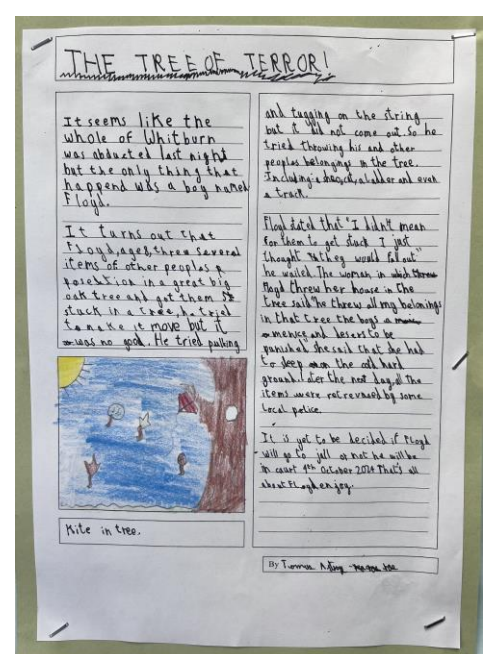 THE TREE OF TERROR!
It seems like the
whole of Whitburn
was abducted last night
but the only thing that
happend was a boy named
Floyd.
It turns out that
Floyd, age8, threw several
items of other peoples p
posestion in a great big
oak tree and got them
stuck in a tree, he tried
to make it move but it
was no good. He tried pulling
Kite in tree.
and tugging on the string
but it did not come out. So he
tried throwing his and other
peoples belongings in the tree.
Including: a shoe, cat, a ladder and even
a truck.
Floyd stated that "I didn't mean
for them to get stuck I just
thought they would fall out"
he wailed. The woman in which
Floyd threw her house in the
tree said "He threw all my belongings
in that tree the boys a
menice and desers to be
punished" she said that she had
to sleep on the cold hard
ground. later the next day, all the
items were retrevued by some
local police.
It is yet to be decided if Floyd
will go to jall or not he will be
in court 4th October 2024 That's all
about Floyd enjoy.
By Thomas